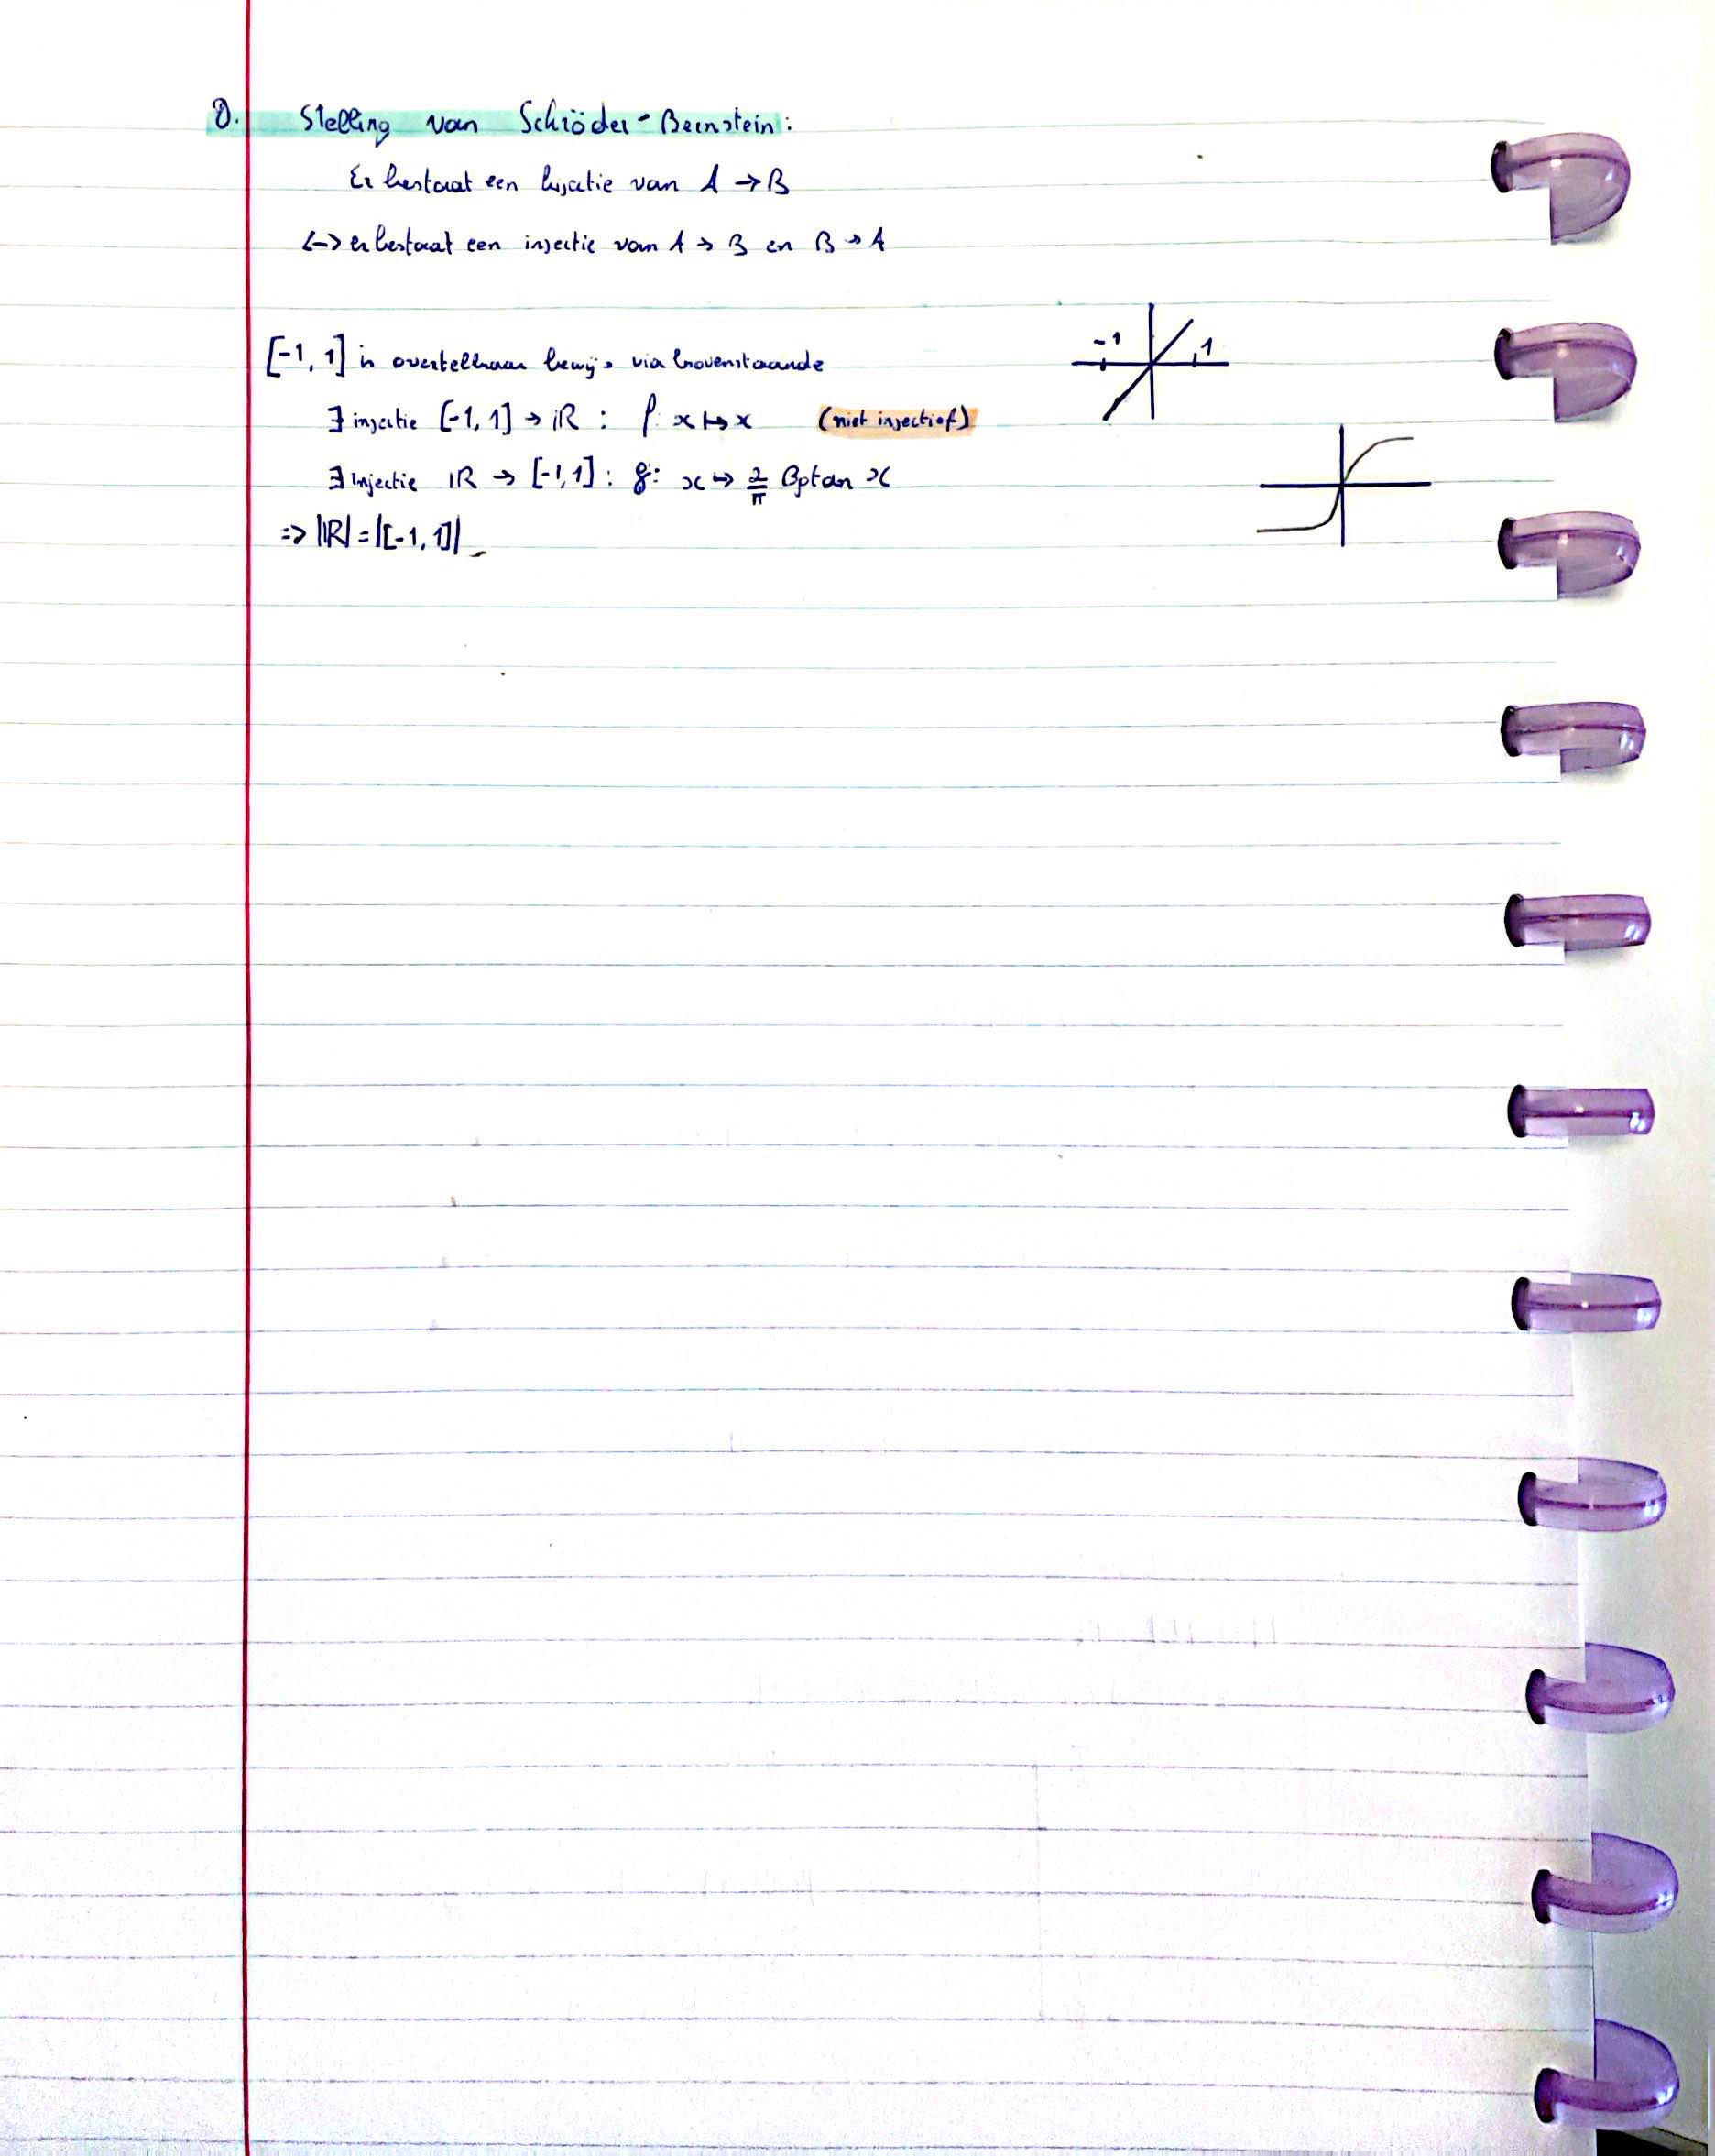 D. Stelling van Schröder-Bernstein:
Er bestaat een bijectie van A → B
<-> er bestaat een injectie van A → B en B → A
[-1, 1] is overtelbaar bewijs via bovenstaande
∃ injectie [-1, 1] → ℝ : f: x ↦ x (niet injectief)
∃ Injectie ℝ → [-1, 1] : g: x ↦ 2/π Bgtan x
=> |ℝ| = |[-1, 1]|
-1
1